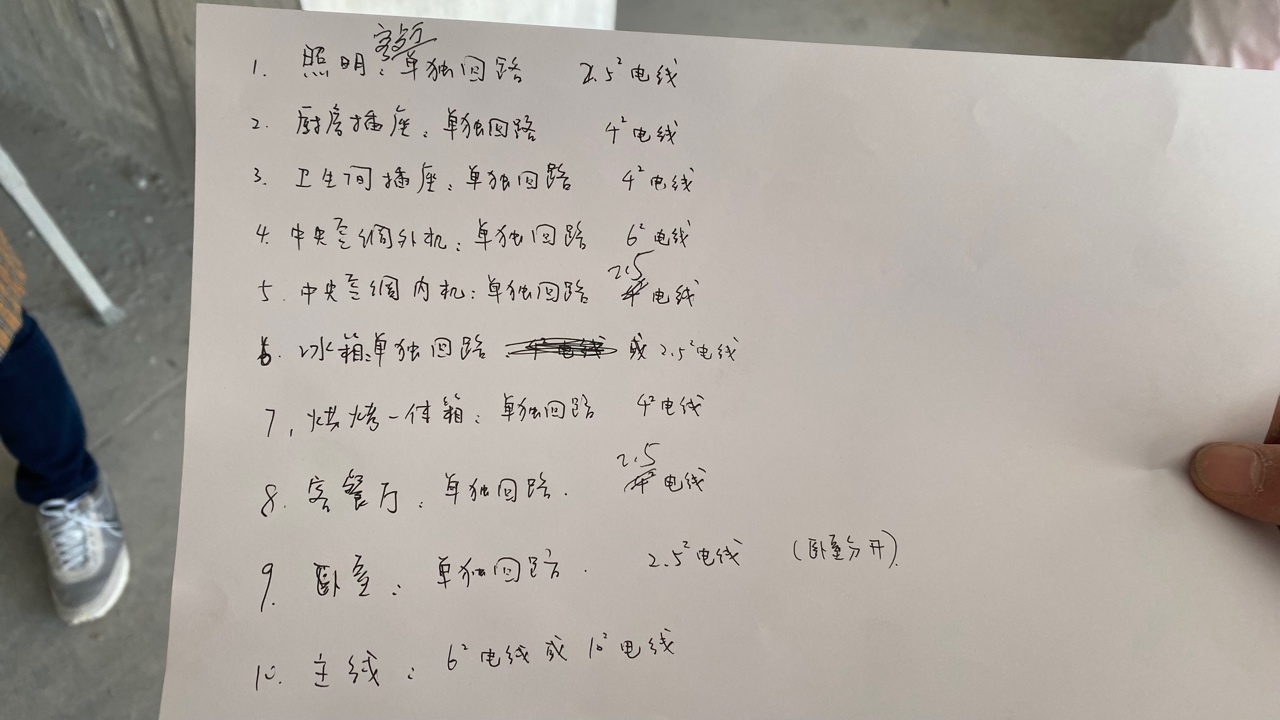 客厅
1. 照明：单独回路 2.5² 电线
2. 厨房插座：单独回路 4² 电线
3. 卫生间插座：单独回路 4² 电线
4. 中央空调外机：单独回路 6² 电线
2.5
5. 中央空调内机：单独回路 电线
6. 冰箱：单独回路 或 2.5² 电线
7. 烘烤一体箱：单独回路 4² 电线
2.5
8. 客餐厅：单独回路. 电线
9. 卧室：单独回路. 2.5² 电线 (卧室分开).
10. 主线：6² 电线或 10² 电线